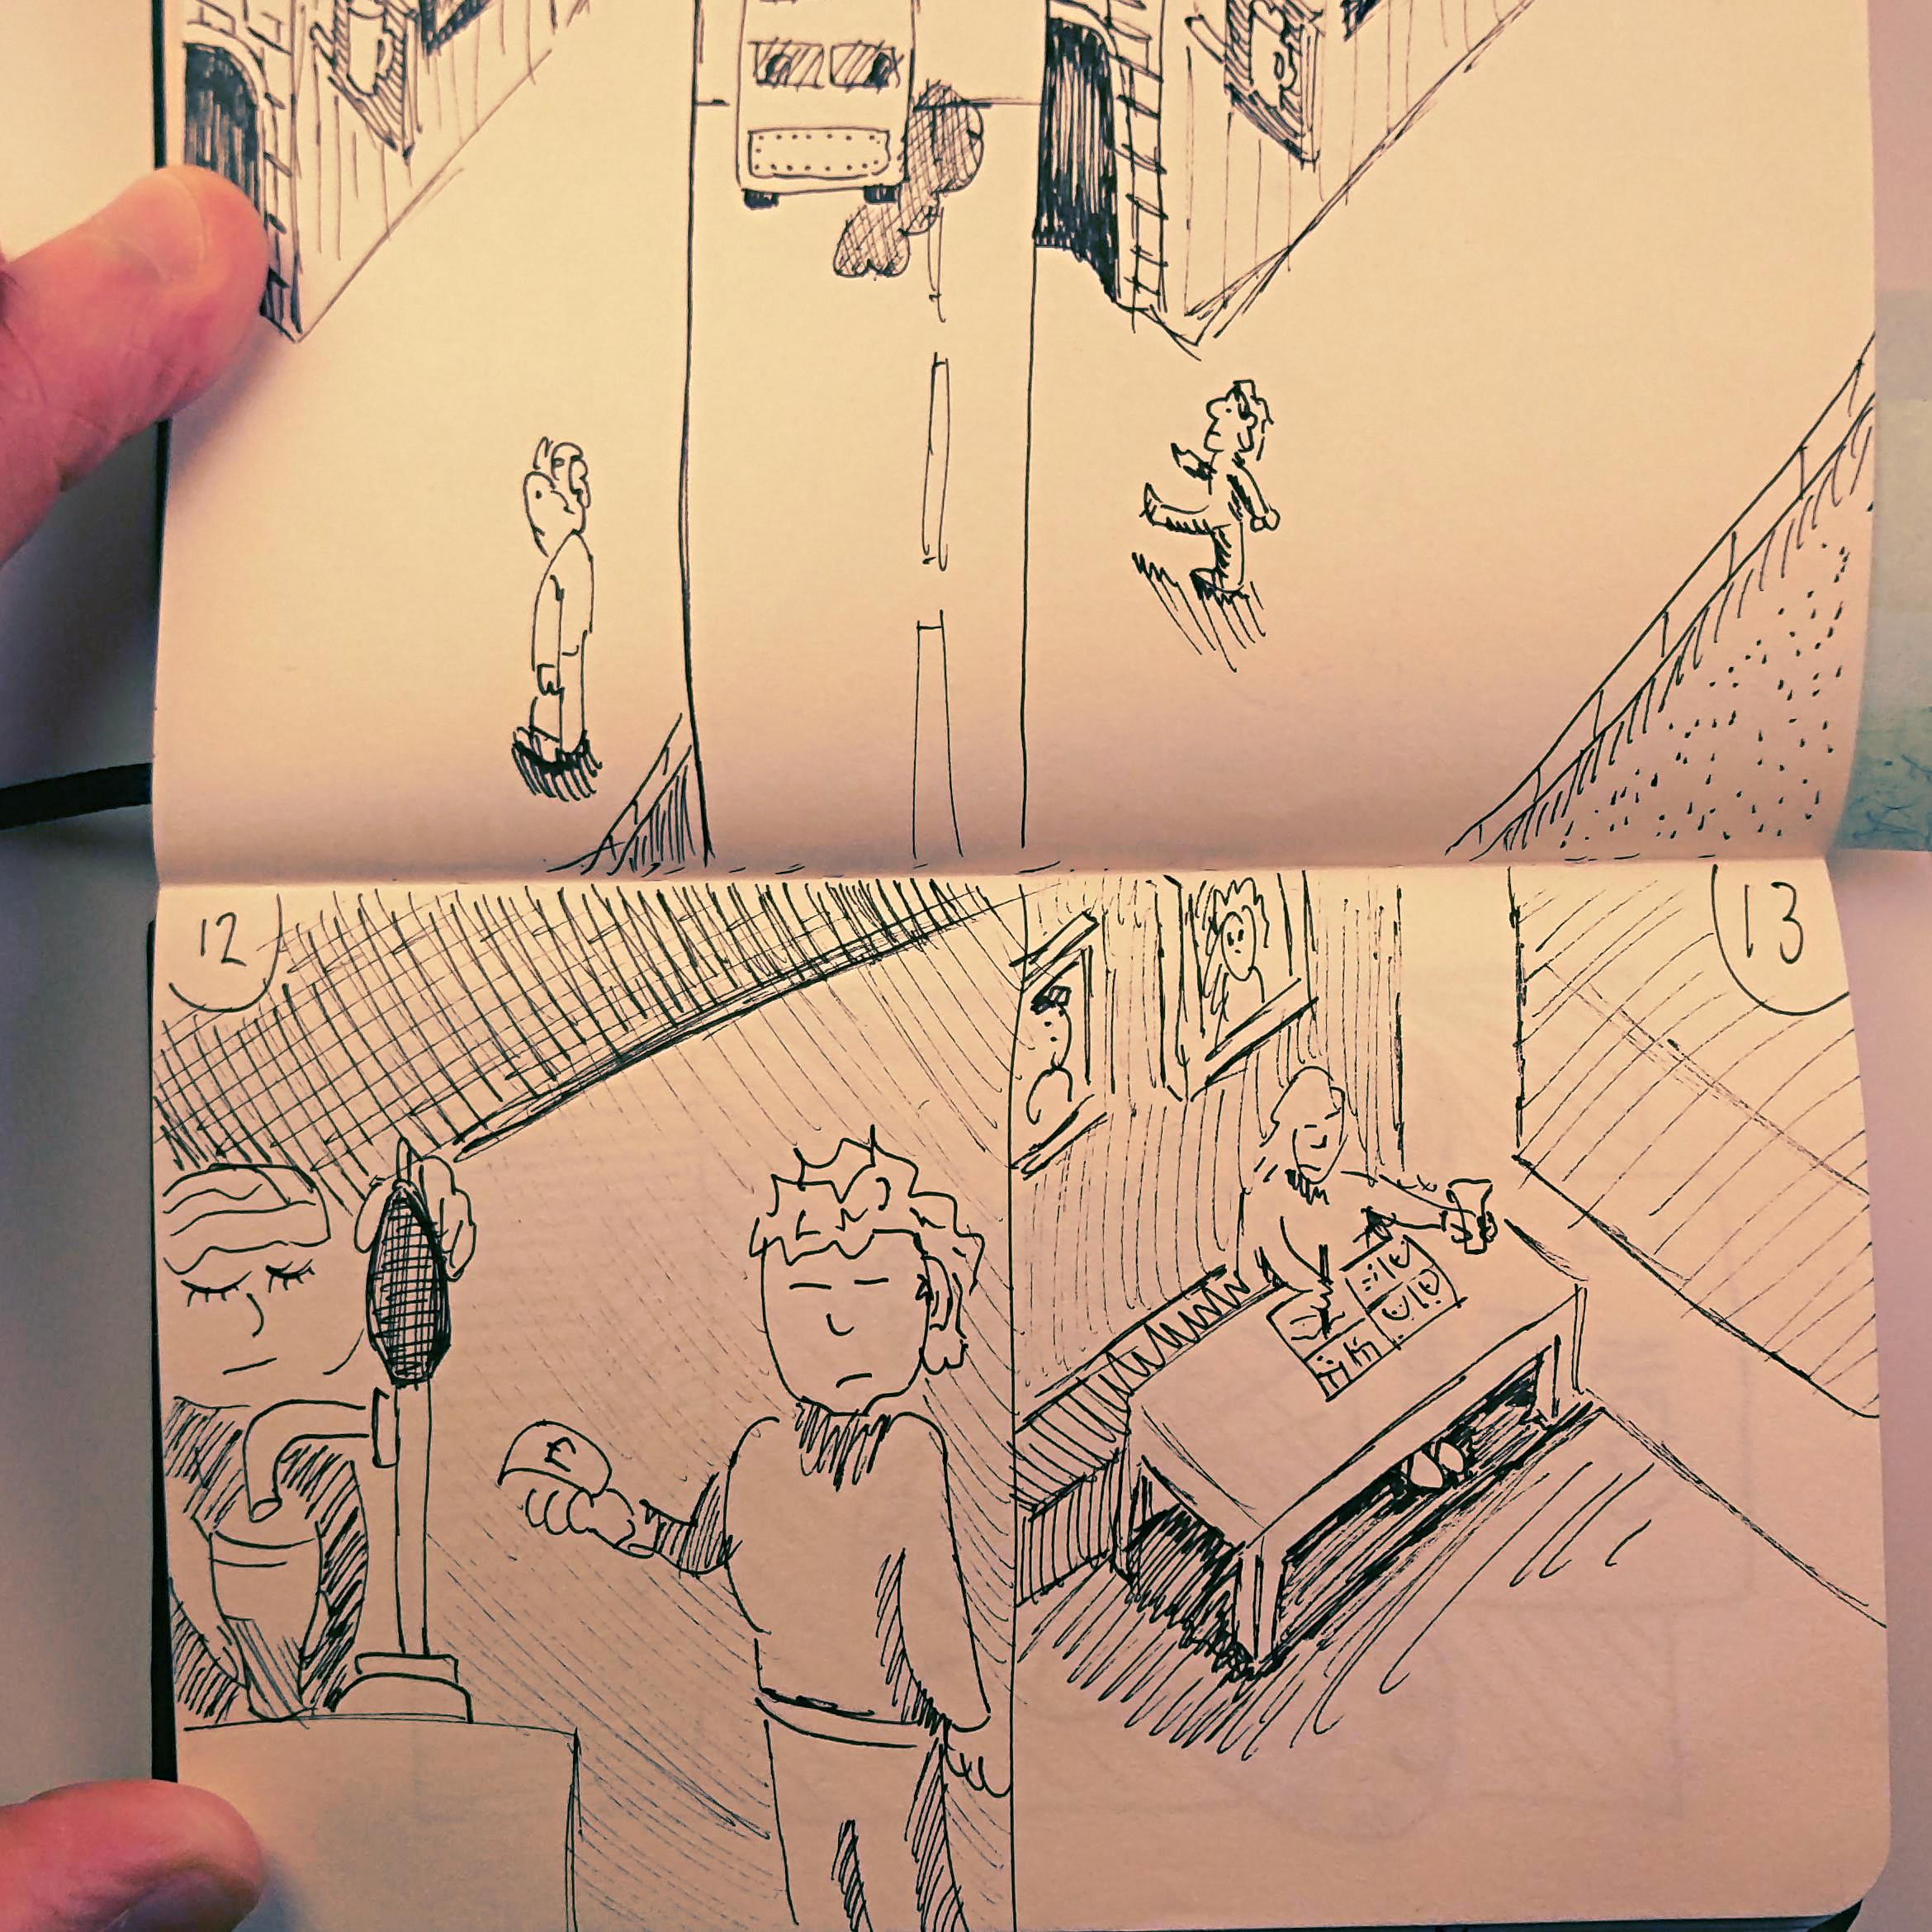 12
13
£